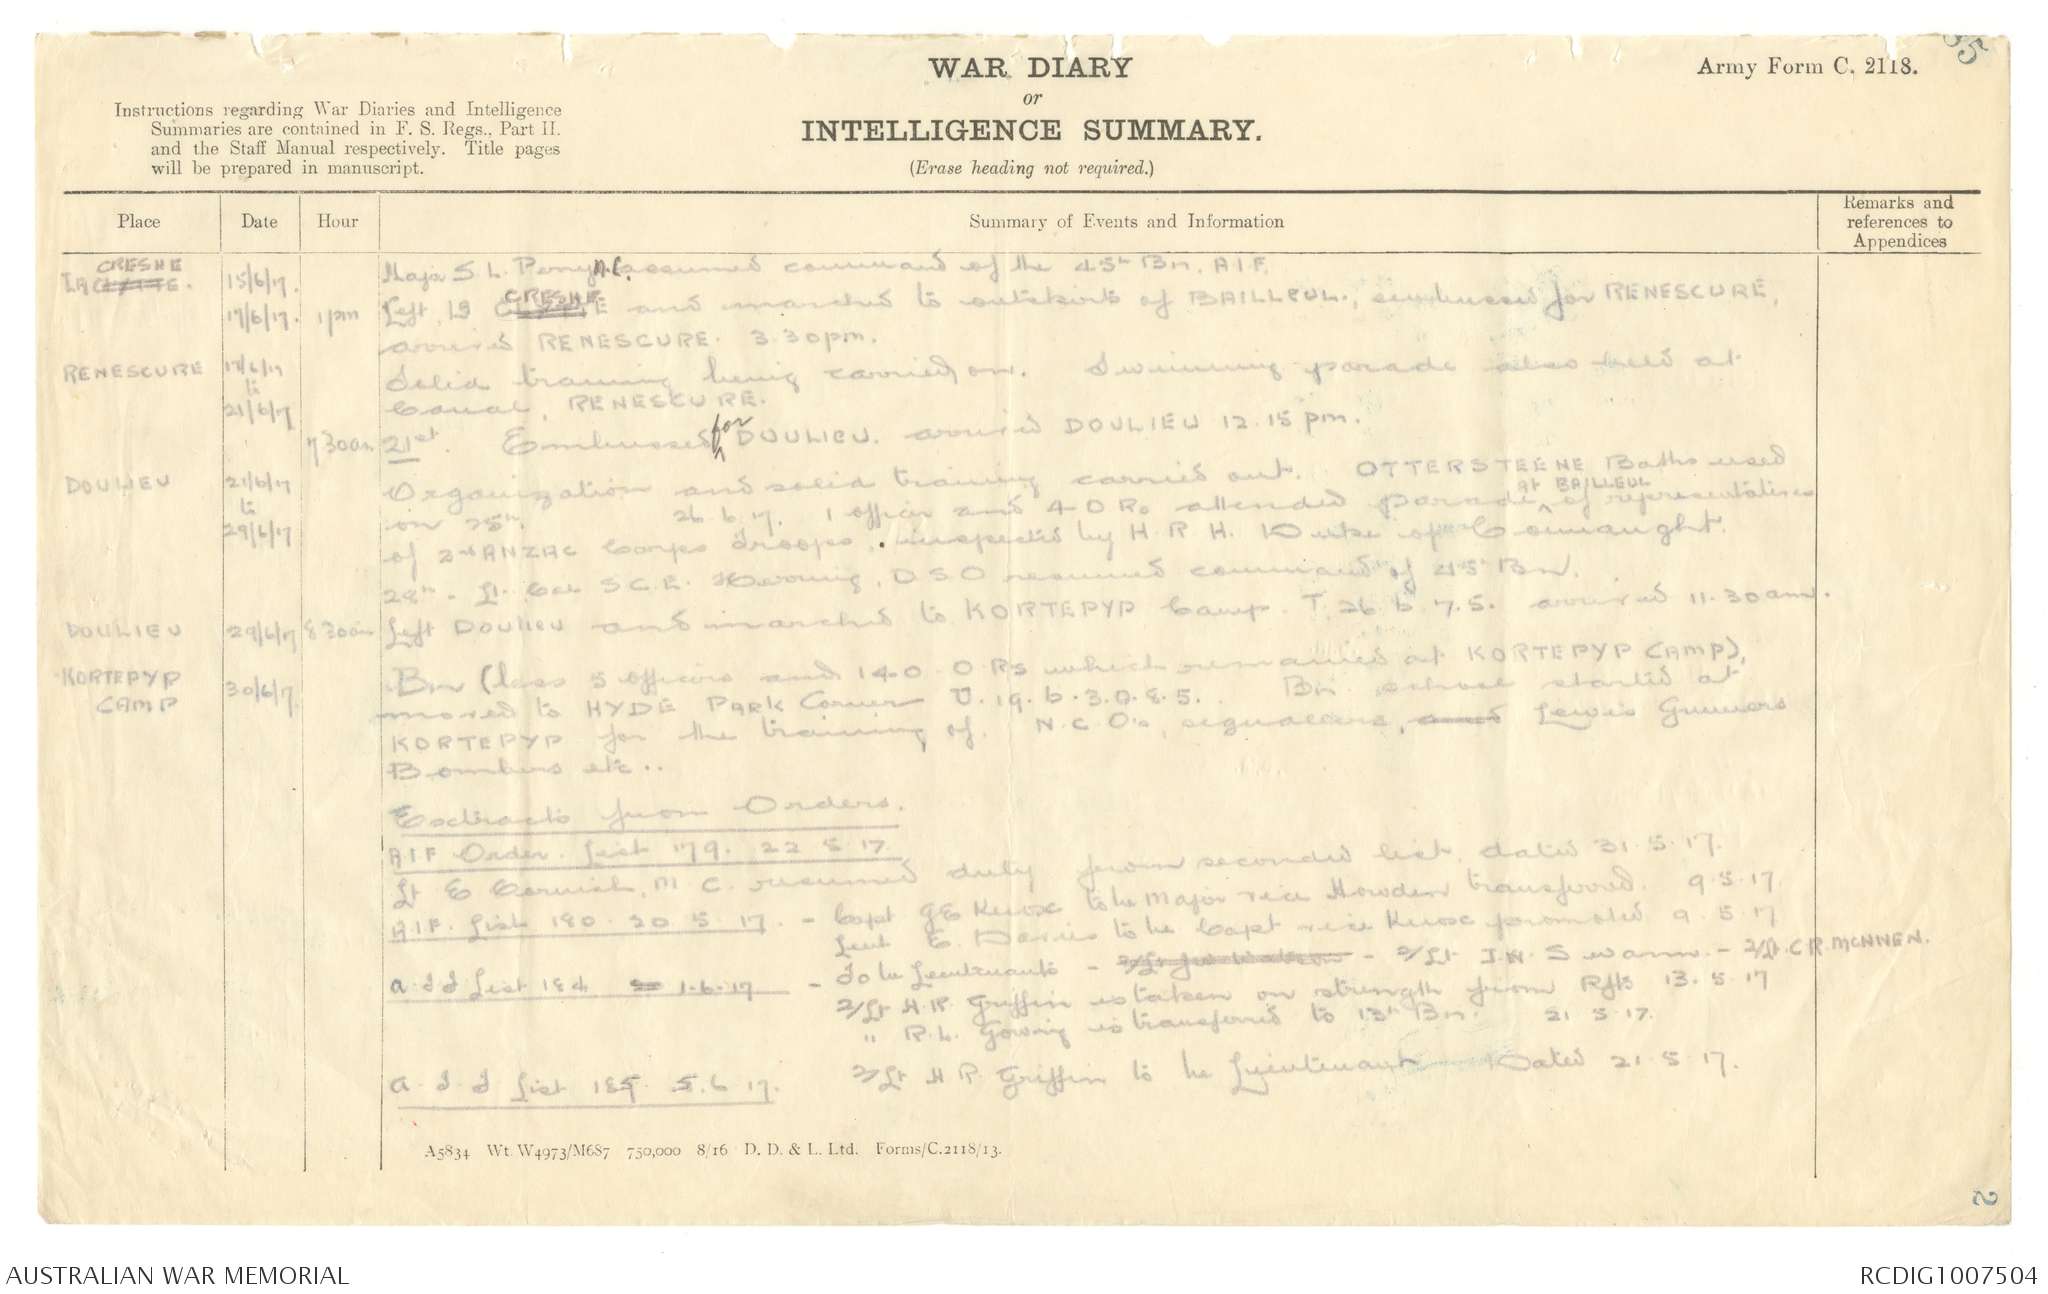 55
WAR DIARY
or
INTELLIGENCE SUMMARY.
(Erase heading not required.)
Army Form C. 2118.
Instructions regarding War Diaries and Intelligence
Summaries are contained in F. S. Regs., Part II.
and the Staff Manual respectively. Title pages
will be prepared in manuscript.
Place Date Hour Summary of Events and Information Remarks and references to Appendices
LA CRESHE 15/6/17. Major S. L. Perry M.C. assumed command of the 45th Bn. A.I.F.
17/6/17. 1 pm Left LA CRESHE and marched to outskirts of BAILLEUL., embussed for RENESCURE,
arrived RENESCURE. 3.30pm.
RENESCURE 17/6/17 to 21/6/17 Solid training being carried on. Swimming parade also held at
Canal, RENESCURE.
7 30am 21st. Embussed for DOULIEU. arrived DOULIEU 12.15 pm.
DOULIEU 21/6/17 to 29/6/17 Organization and solid training carried out. OTTERSTEENE Baths used
on 25th. 26.6.17. 1 officer and 4 ORs attended parade at BAILLEUL of representatives
of 2nd ANZAC Corps troops, inspected by H.R.H. Duke of Connaught.
28th - Lt. Col S.C.E. Herring, D.S.O resumed command of 45th Bn.
DOULIEU 29/6/17 8 30am Left DOULIEU and marched to KORTEPYP Camp. T.26.b.7.5. arrived 11.30am.
KORTEPYP CAMP 30/6/17. Bn (less 5 officers and 140 O.Rs which remained at KORTEPYP CAMP),
moved to HYDE PARK Corner U.19.b.3.0.8.5. Bn. school started at
KORTEPYP for the training of. N.C.O's, signallers, and Lewis Gunners
Bombers etc..
Extracts from Orders.
A.I.F Order. List 179. 22 5 17.
Lt E Cornish, M.C. resumed duty from seconded list. dated 31.5.17.
A.I.F. List 180. 20.5.17. - Capt G E Knox to be Major vice Howden transferred. 9.5.17.
Lieut E. Davies to be Capt vice Knox promoted 9.5.17
A.I.F List 184 1.6.17 - To be Lieutenants - - 2/Lt I.N. Swann. - 2/Lt. C.R. McNNEN.
2/Lt H.R. Griffin is taken on strength from Rfts 13.5.17
" R.L. Gowing is transferred to 13th Bn. 21 5.17.
A.I.F List 185. 5.6 17. 2/Lt H R. Griffin to be Lieutenant Dated 21.5.17.
A5834 Wt. W4973/M687 750,000 8/16 D. D. & L. Ltd. Forms/C.2118/13.
2
AUSTRALIAN WAR MEMORIAL
RCDIG1007504